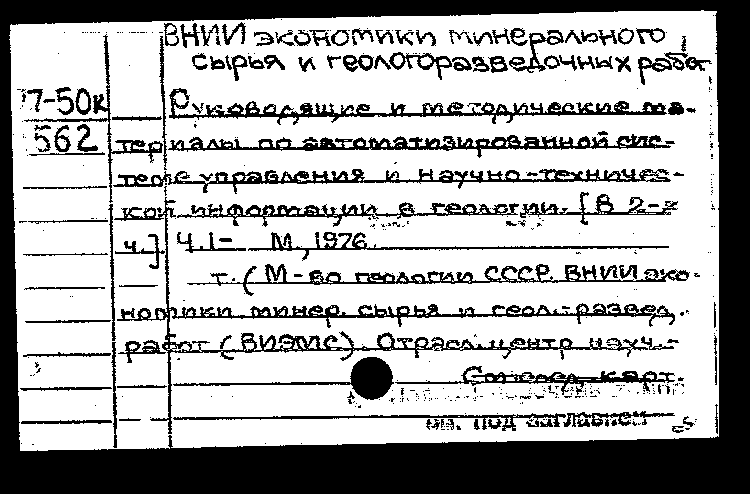 ВНИИ экономики минерального
сырья и геологоразведочных работ
7-50к
562
Руководящие и методические ма-
териалы по автоматизированной сис-
теме управления и научно-техничес-
кой информации в геологии. [В 2-х
ч.] Ч.1- М., 1976.
т. (М-во геологии СССР. ВНИИ эко-
номики минер. сырья и геол.-развед.
работ (ВИЭМС). Отрасл. центр науч.-
См. след. карт.
см. под заглавием